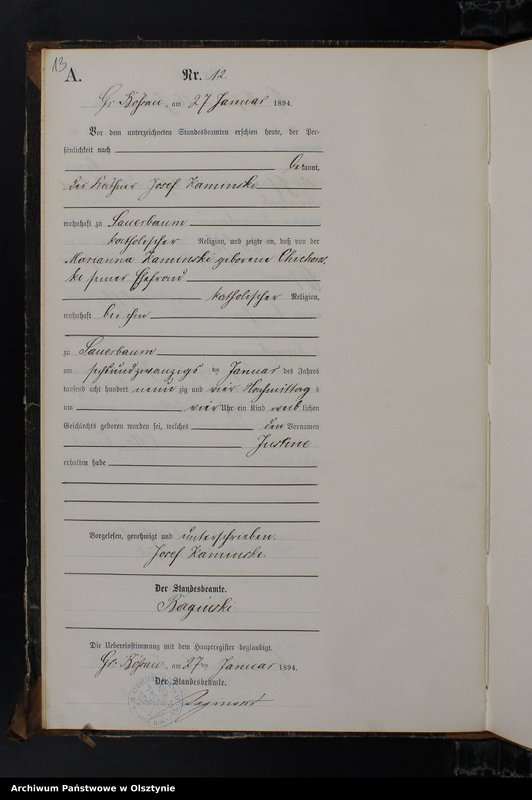 13
A.
Nr. 12.
Gr. Bößau, am 27 Januar 1894.
Vor dem unterzeichneten Standesbeamten erschien heute, der Per-
sönlichkeit nach
bekannt,
der Käthner Josef Kaminski
wohnhaft zu Sauerbaum
katholischer Religion, und zeigte an, daß von der
Marianna Kaminski geborene
ki seiner Ehefrau
katholischer Religion,
wohnhaft bei ihm
zu Sauerbaum
am sechsundzwanzigsten Januar des Jahres
tausend acht hundert neunzig und vier Nachmittags
um vier Uhr ein Kind weiblichen
Geschlechts geboren worden sei, welches den Vornamen
Justine
erhalten habe
Vorgelesen, genehmigt und unterschrieben.
Josef Kaminski.
Der Standesbeamte.
Die Uebereinstimmung mit dem Hauptregister beglaubigt.
Gr. Bößau, am 27ten Januar 1894.
Der Standesbeamte.
Archiwum Państwowe w Olsztynie